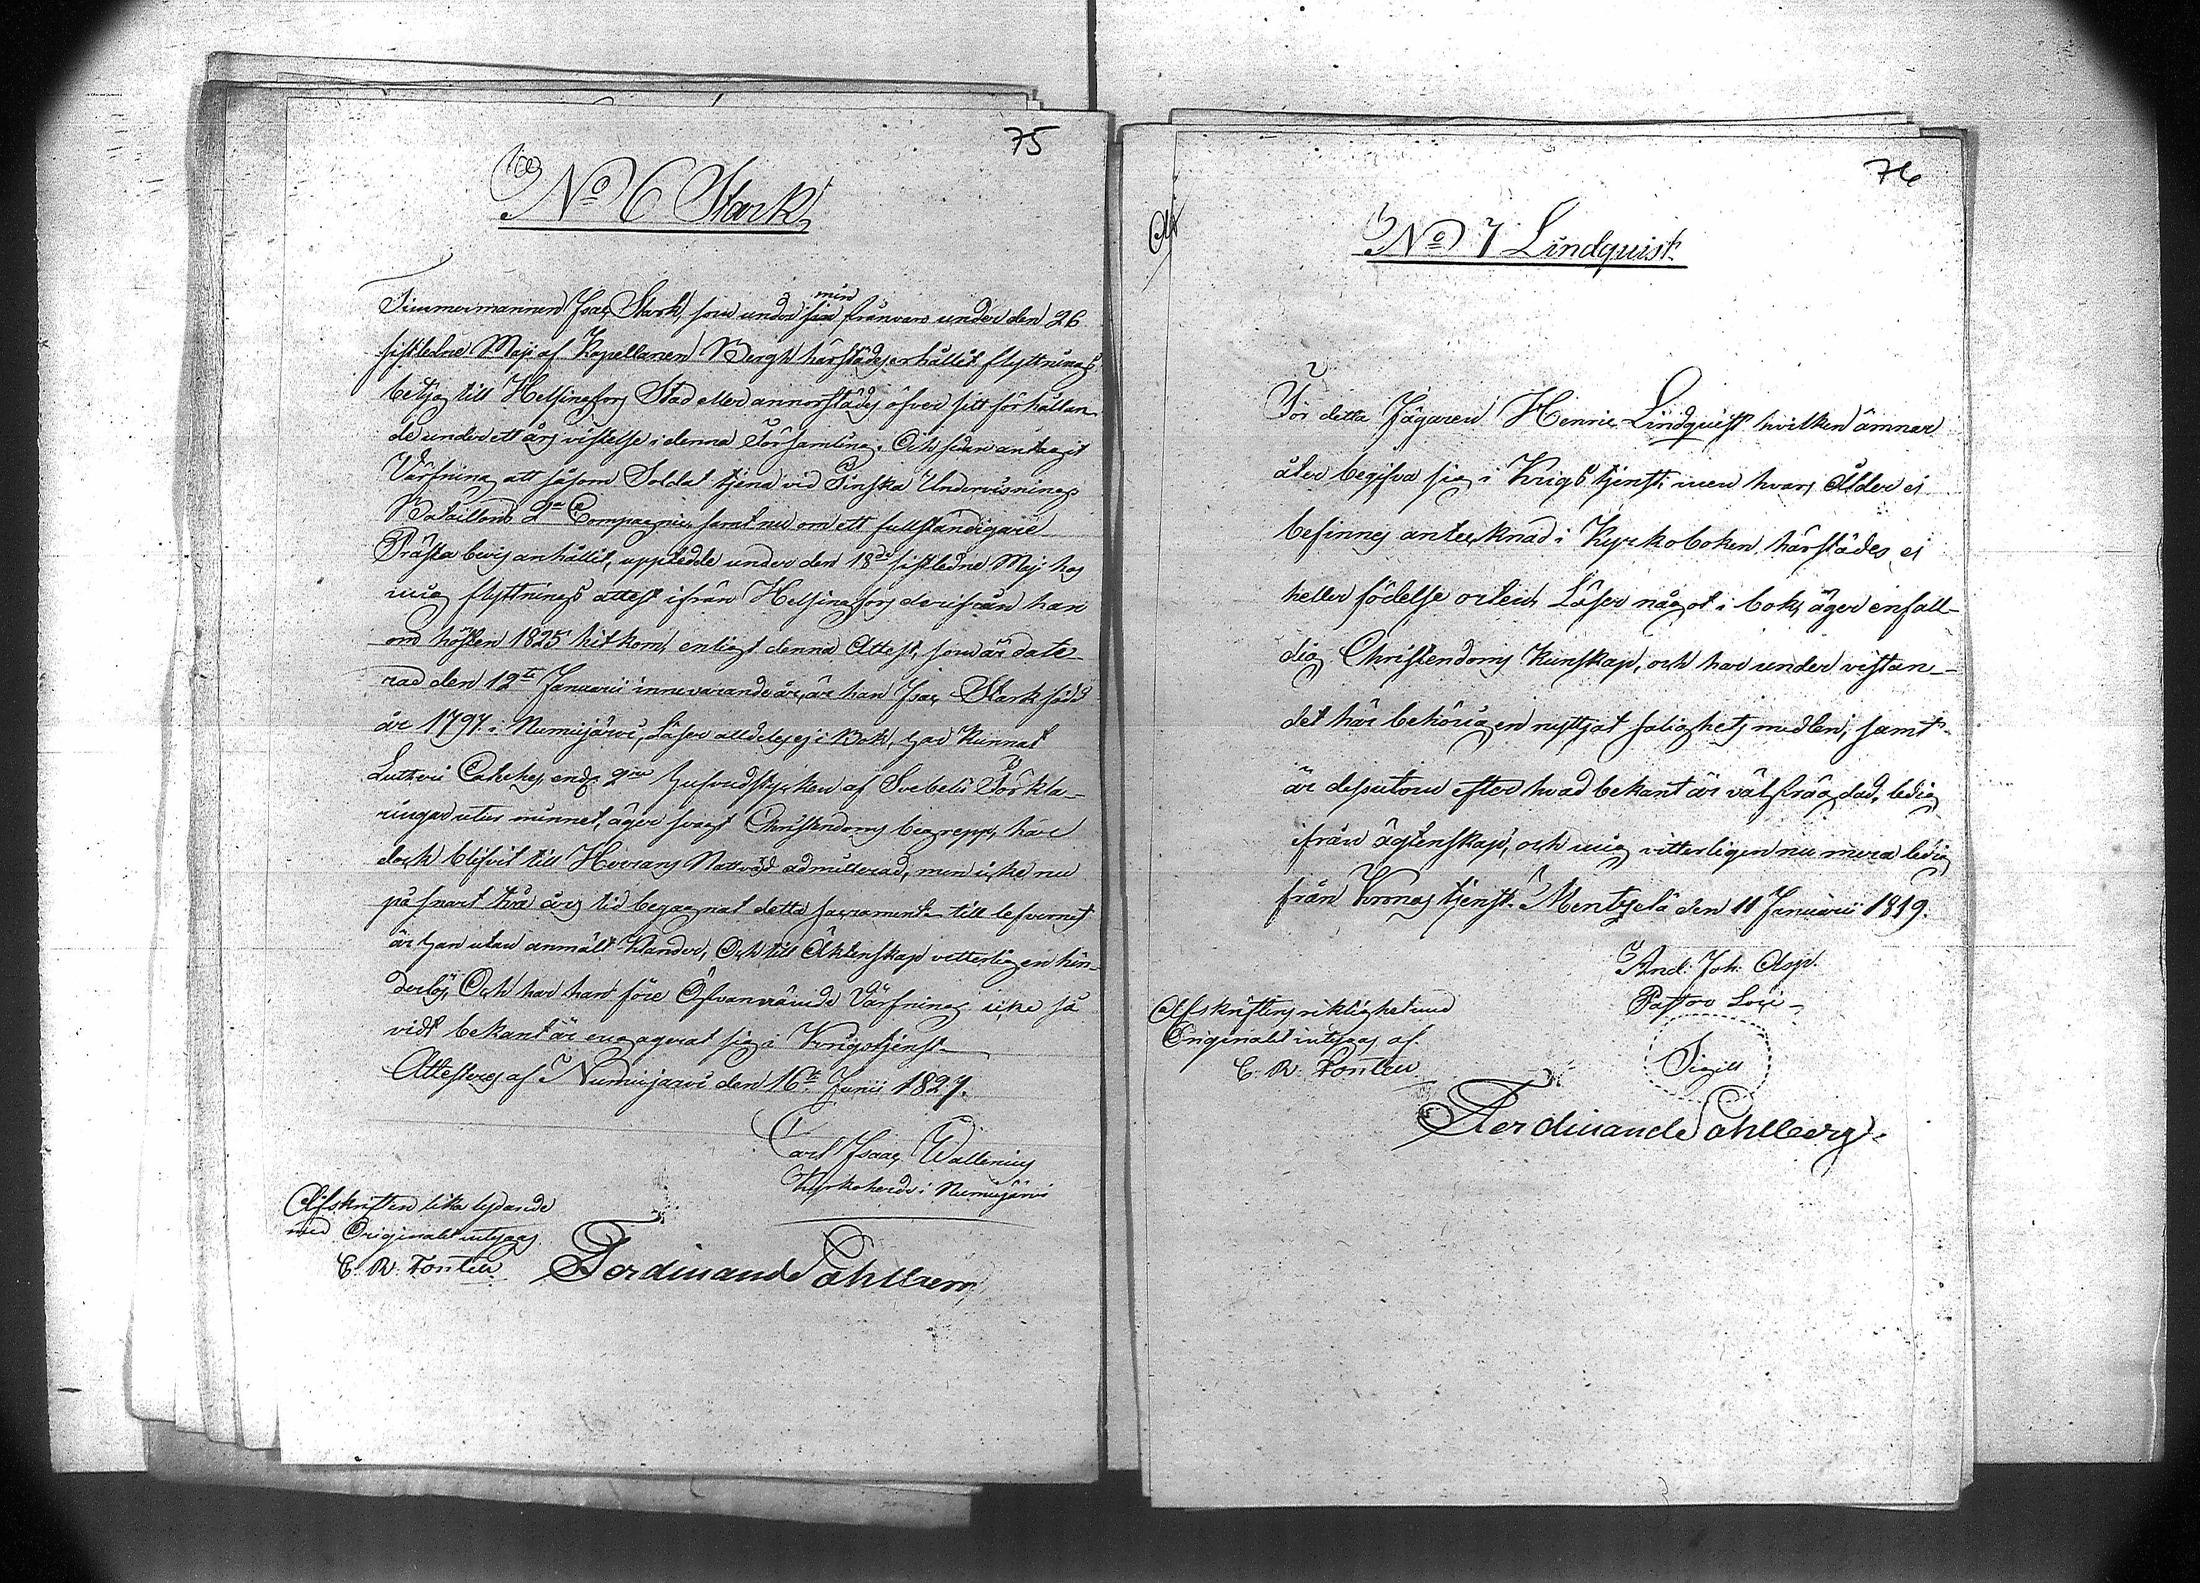 75
No 6 Stark
Timmermannen Isac Stark, som under min frånvaro under den 26
sistledne Maji af Kapellanen Bergh härstädes erhållit flyttnings
betyg till Helsingfors Stad eller annorstädes öfver sitt förhållan
de under ett års vistelse i denna Församling. Och sedan antagit
Värfning att såsom Soldat tjena vid Finska Undervisnings
Bataillons 2a Compagnie, samt nu om ett fullständigare
Prästa bevis anhållit, uppledde under den 18de sistledne Maj hos
mig flyttnings attest ifrån Helsingfors derifrån han
om hösten 1825 hit kom, enligt denna Attest, som är date-
rad den 12te Januarii innevarande år, är han Isac Stark född
år 1797 i Nurmijärvi, Läser alldeles ej i Bok, har kunnat
Lutheri Cateches, och 2ne hufvudstycken af Svebelii Förkla-
ringar utur minnet, äger svagt Christendoms begrepp, har
dock blifvit till Herrans Nattvard admitterad, men icke nu
på snart två års tid begagnat detta sacramente till lefvernet
är han utan anmält klander, Och till Äktenskap vetterligen hin-
derlös, Och har han före Ofvannämde Värfning icke så
vidt bekant är engagerat sig i Krigstjenst.
Attesteras af Nurmijärvi den 16te Junii 1827.
Carl Isaac Wallenius
Kyrkoherde i Nurmijärvi
Afskriften lika lydande
med Originalet intygas
C. R. Fontell
Ferdinand Sahlberg
76
No 7 Lindquist
För detta Jägaren Henric Lindquist hvilken ämnar
åter begifva sig i Krigs tjenst, men hvars ålder ej
befinnes antecknad i Kyrkoboken härstädes, ej
heller födelse orten, Läser något i bok, äger enfall-
dig Christendoms kunskap, och har under vistan-
det här behörigen nyttjat salighets medlen, samt
är dessutom efter hvad bekant är välfrägdad, ledig
ifrån ägtenskap, och mig vitterligen nu mera ledig
från Kronas tjenst. Mentzelä den 11 Januarii 1819.
And. Joh. Asp.
Pastor Loci
Sigill
Afskriftens riktighet med
Originalet intygas af.
C. R. Fontell
Ferdinand Sahlberg